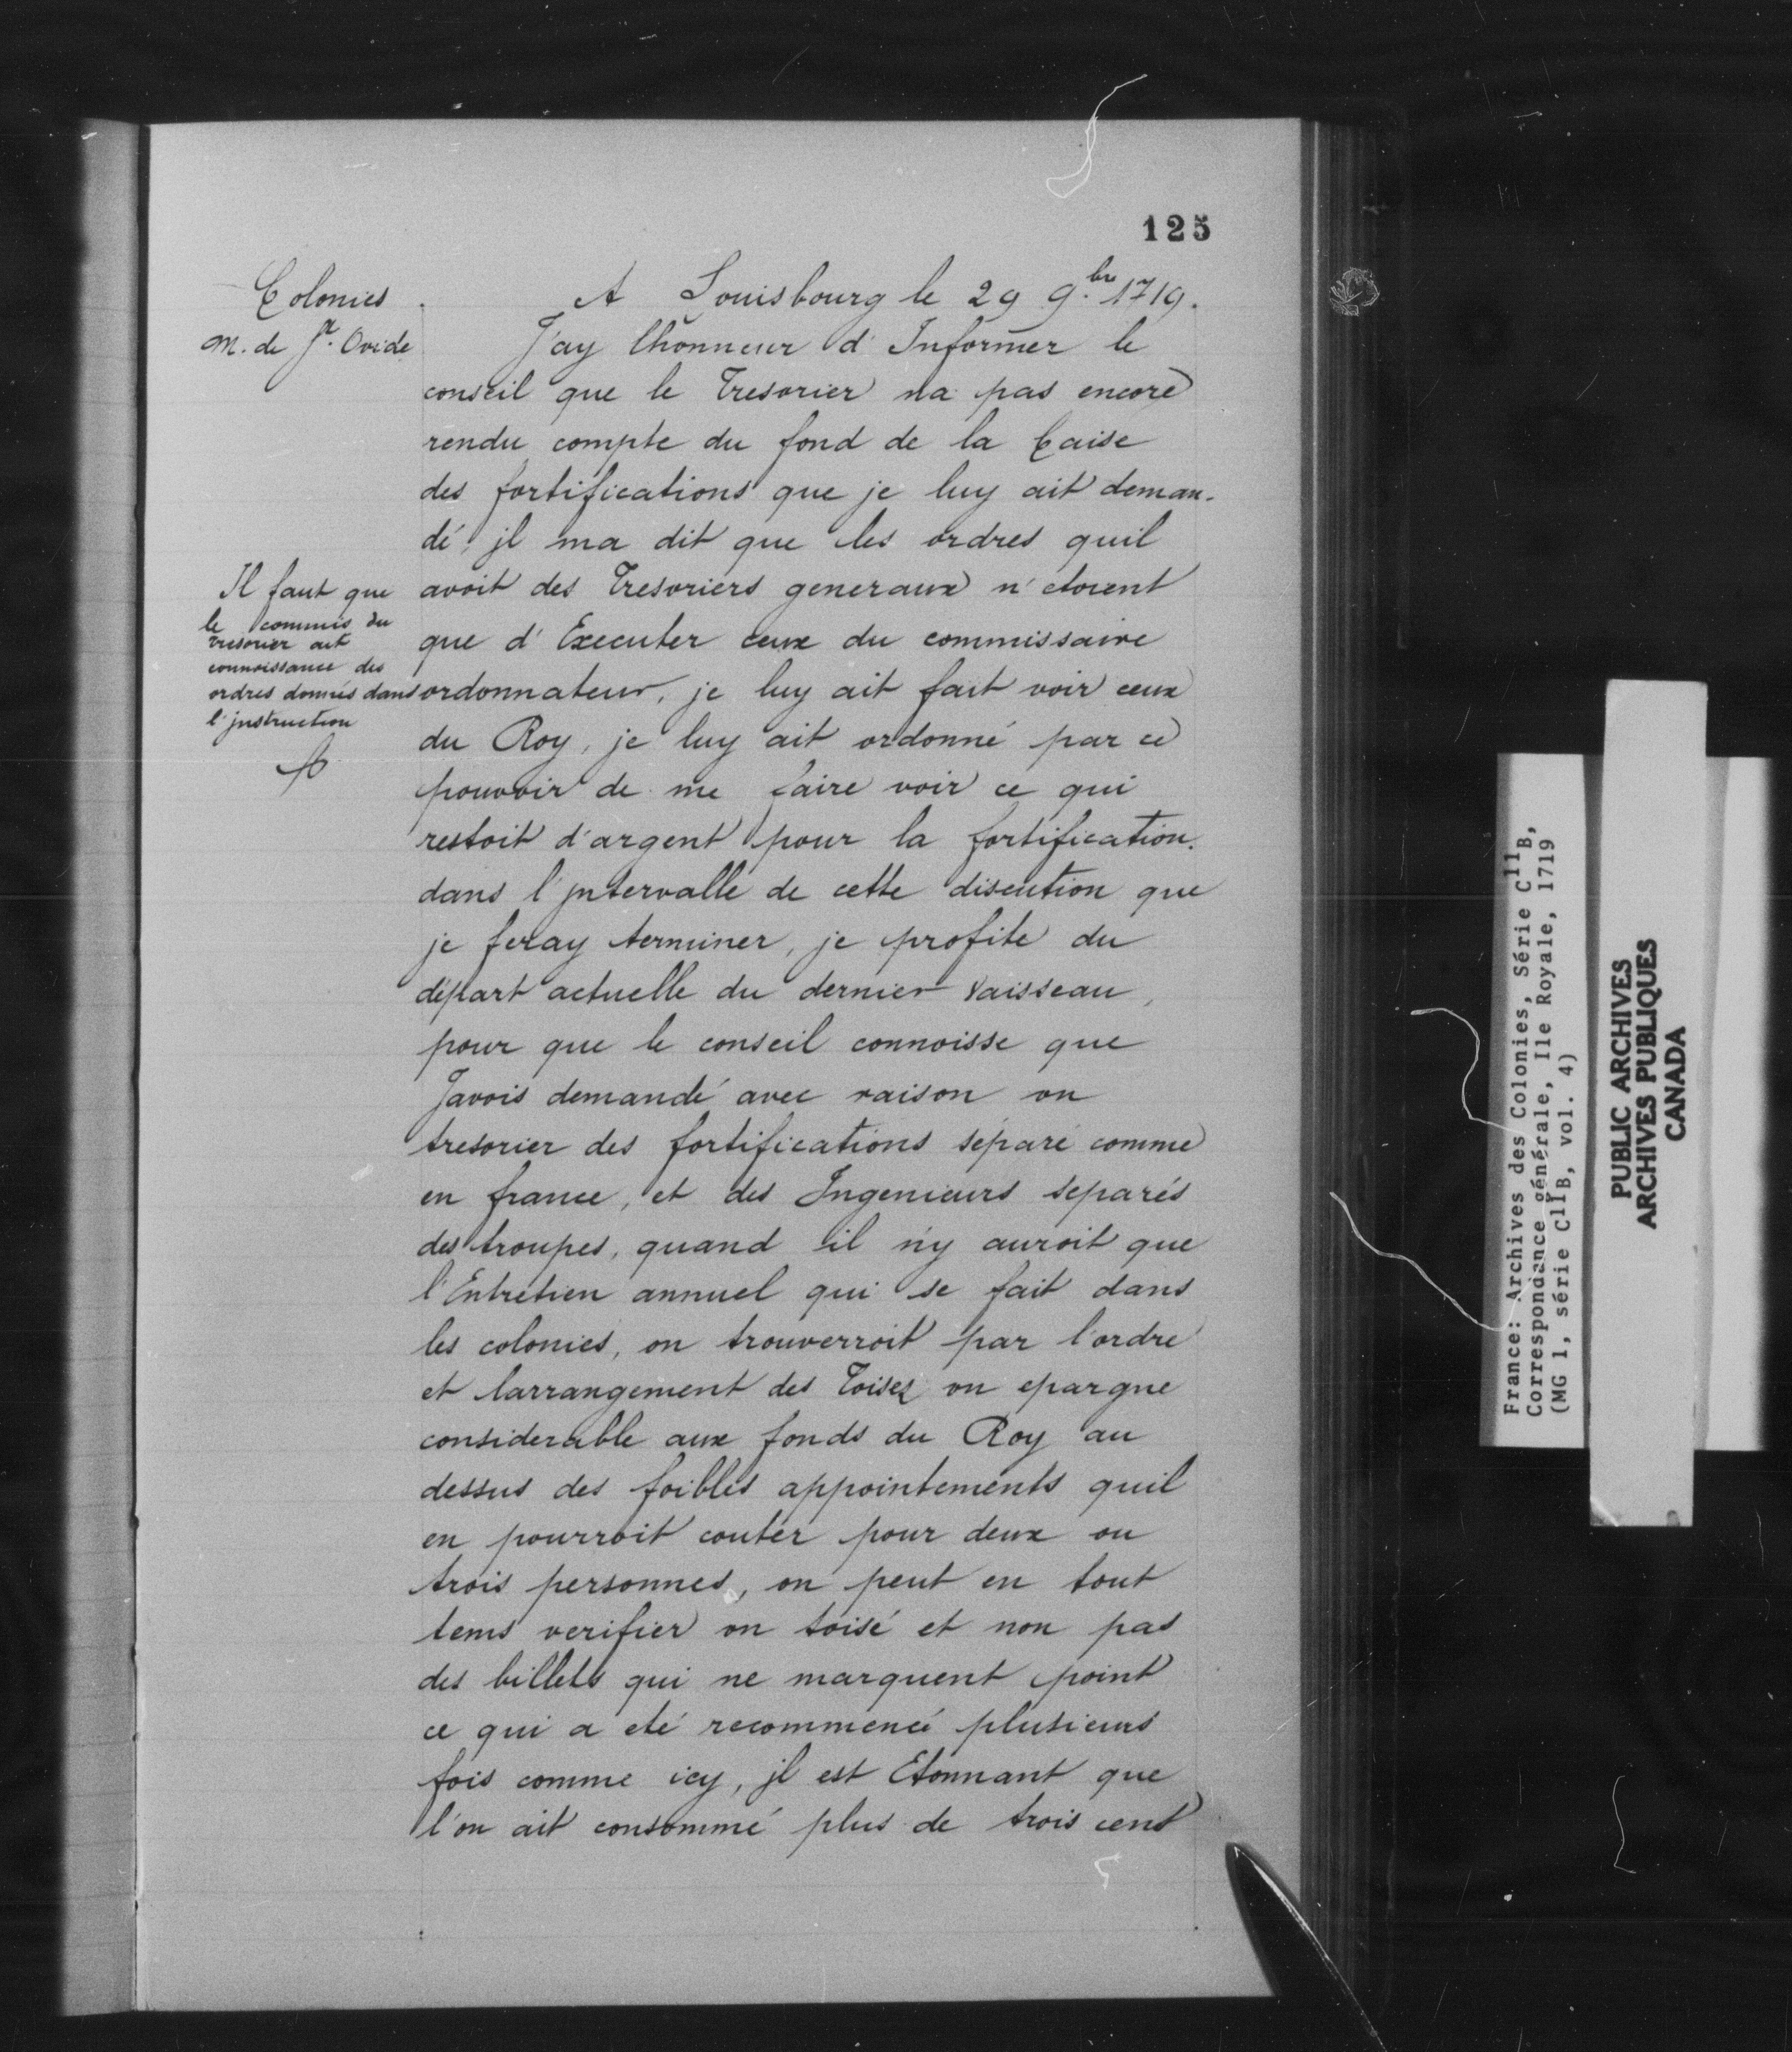 125
Colonies
M. de St. Ovide
A Louisbourg le 29 9.bre 1719.
J'ay lhonneur d'Informer le
conseil que le Tresorier na pas encore
rendu compte du fond de la Caise
des fortifications que je luy ait deman-
dé, jl ma dit que les ordres quil
avoit des Tresoriers generaux n'etoient
que d'Executer ceux du commissaire
ordonnateur, je luy ait fait voir ceux
du Roy, je luy ait ordonné par ce
pouvoir de me faire voir ce qui
restoit d'argent pour la fortification.
dans l'jntervalle de cette discution que
je feray terminer, je profite du
départ actuelle du dernier vaisseau,
pour que le conseil connoisse que
Javois demandé avec raison un
tresorier des fortifications séparé comme
en france, et des Ingenieurs separés
des troupes, quand il n'y auroit que
l'Entretien annuel qui se fait dans
les colonies, on trouverroit par l'ordre
et larrangement des Toisez un epargne
considerable aux fonds du Roy au
dessus des foibles appointements quil
en pourroit couter pour deux ou
trois personnes, on peut en tout
tems verifier un toisé et non pas
des billets qui ne marquent point
ce qui a eté recommencé plusieurs
fois comme icy, jl est Etonnant que
l'on ait consommé plus de trois cent
Il faut que
le commis du
tresorier ait
connoissance des
ordres donnés dans
l'jnstruction
France: Archives des Colonies, Série C11B,
Correspondance générale, Ile Royale, 1719
(MG 1, série C11B, vol. 4)
PUBLIC ARCHIVES
ARCHIVES PUBLIQUES
CANADA